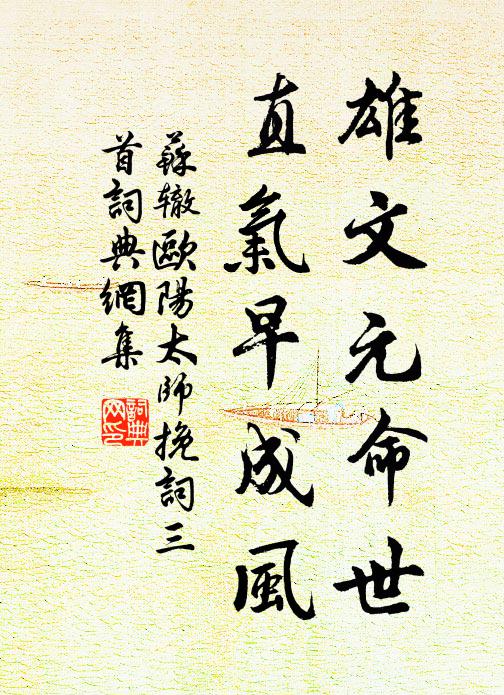 雄文元命世
直氣早成風
蘇辙歐陽太师挽詞三
首詞典網集
詞典
网印